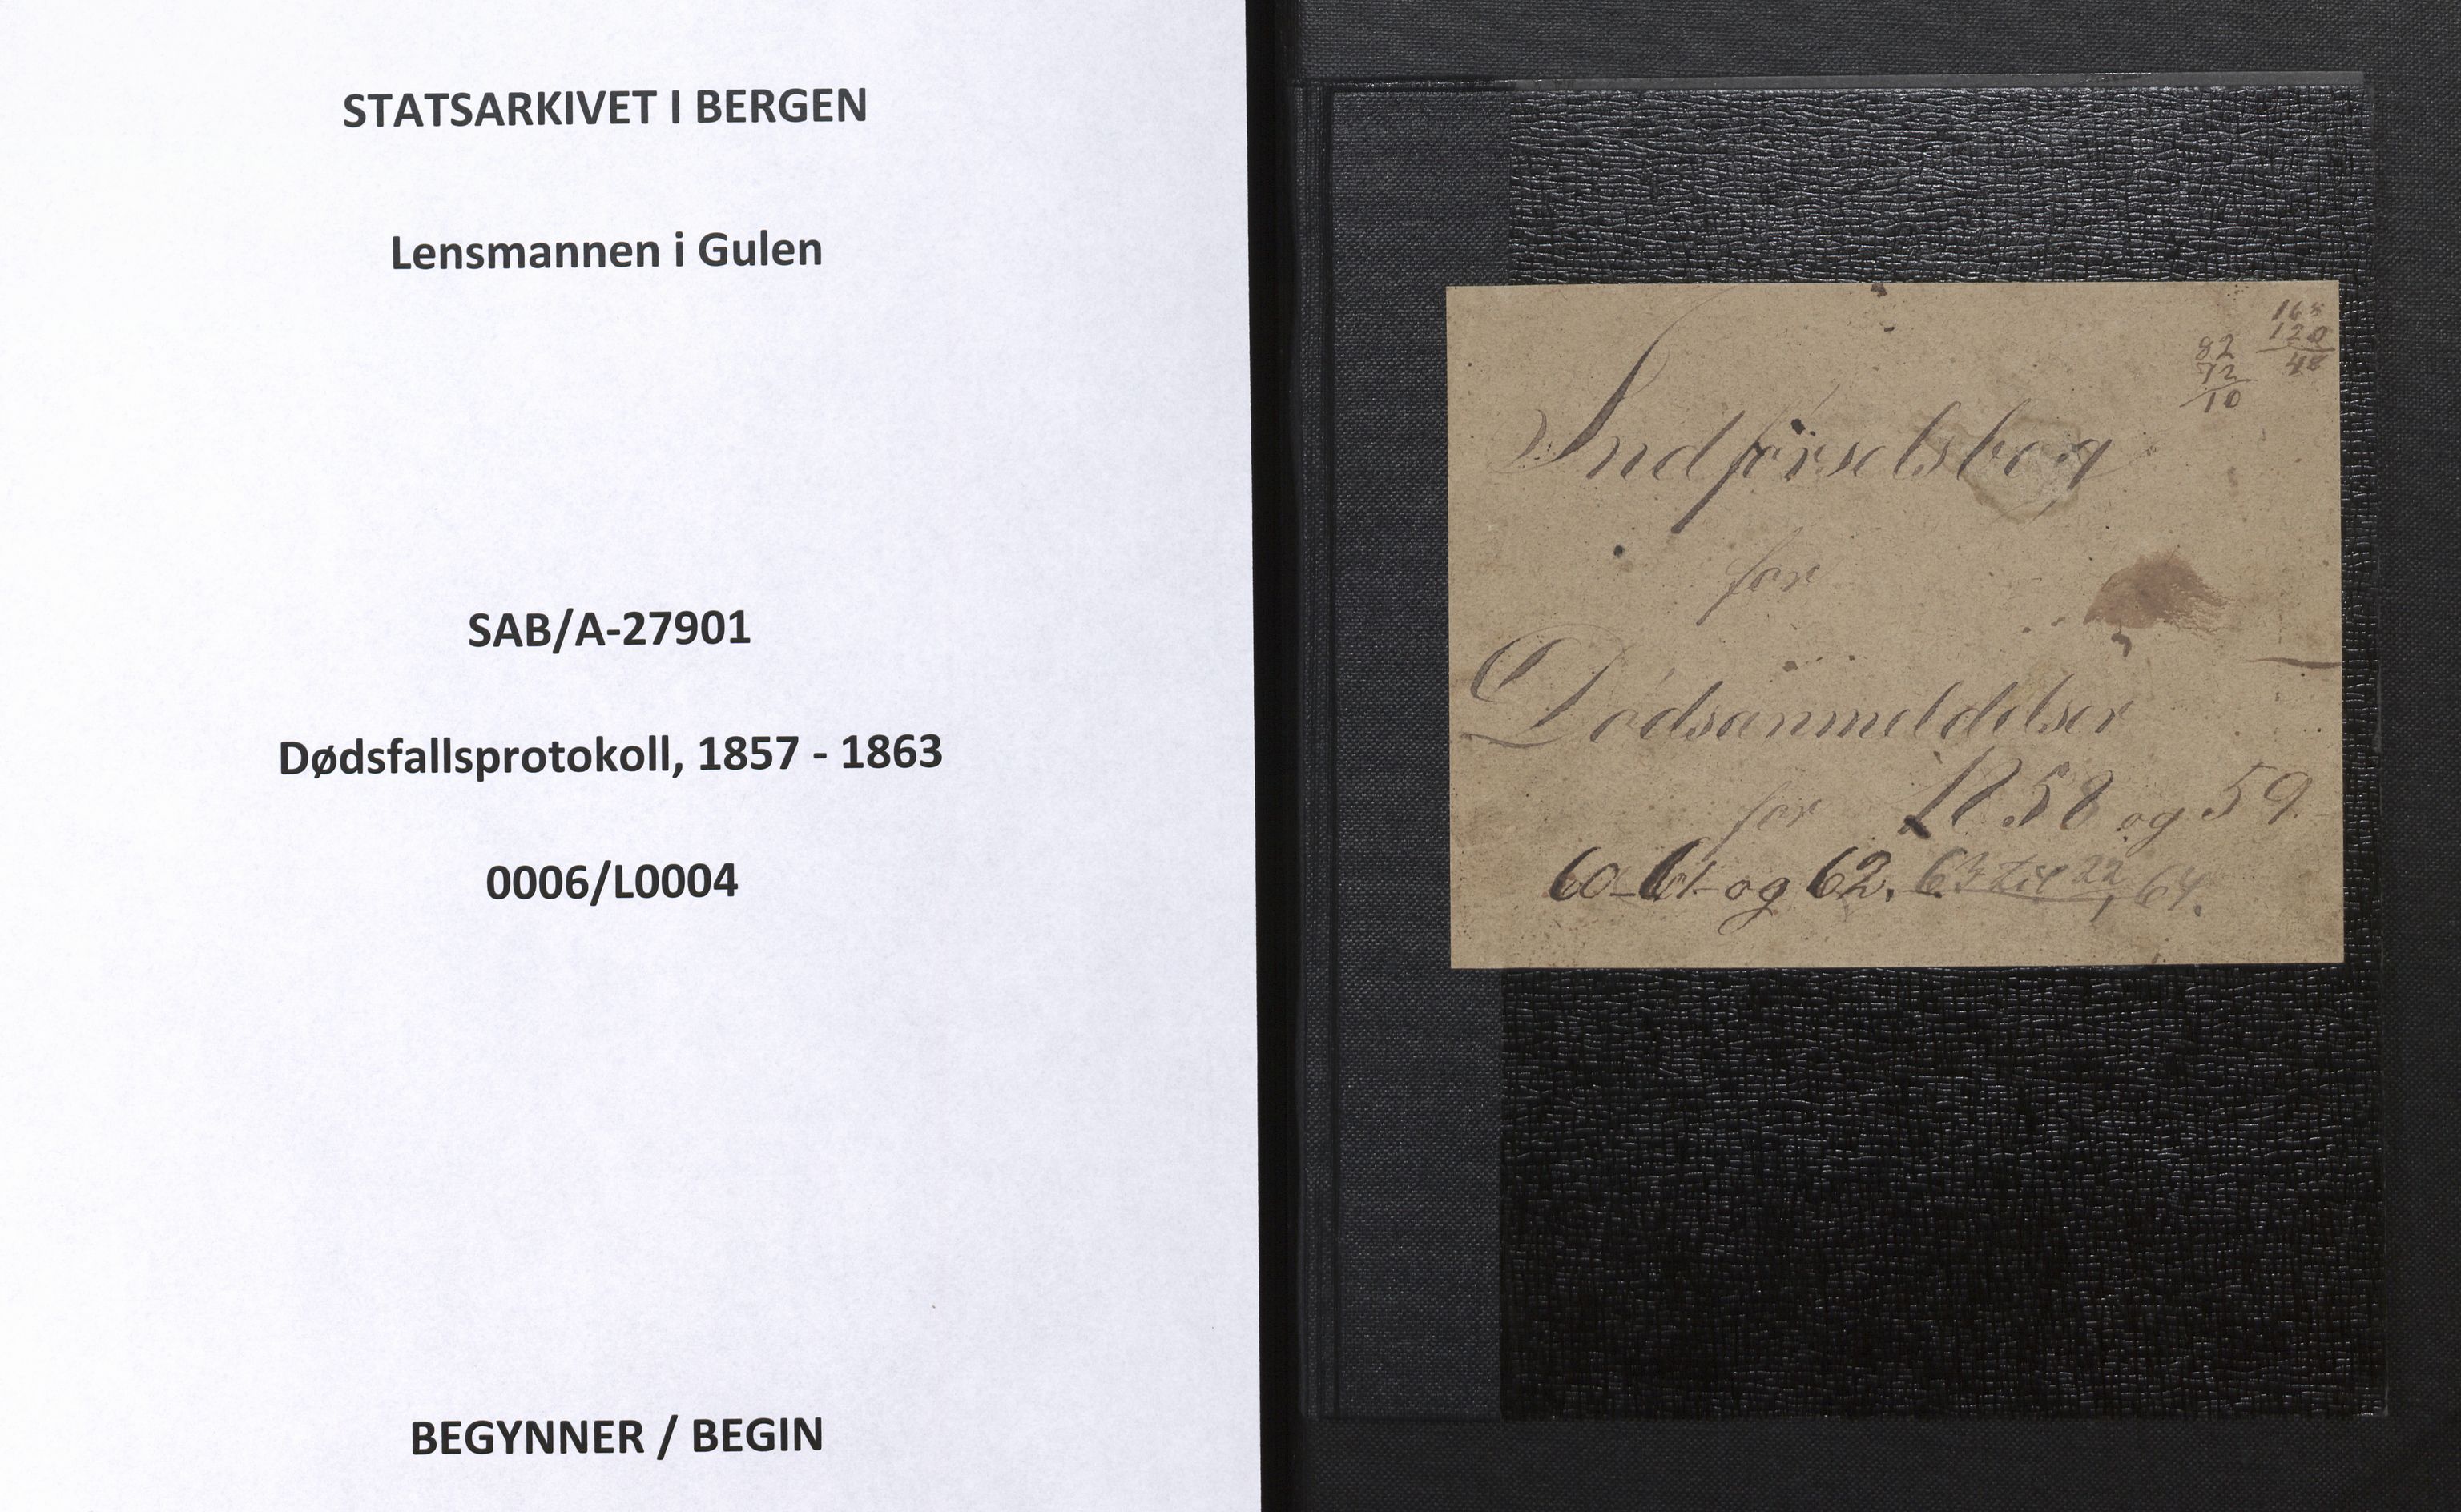 STATSARKIVET I BERGEN
Lensmannen i Gulen
SAB/A-27901
Dødsfallsprotokoll, 1857 - 1863
0006/L0004
BEGYNNER / BEGIN
165
120
82
72
10
Indførselsbog
for
Dødsanmeldelser
for 1858 og 59
60-61-og 62. 63 til 22/1 64.